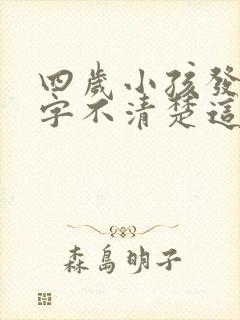 四歲小孩發
字不清楚這
森島明子